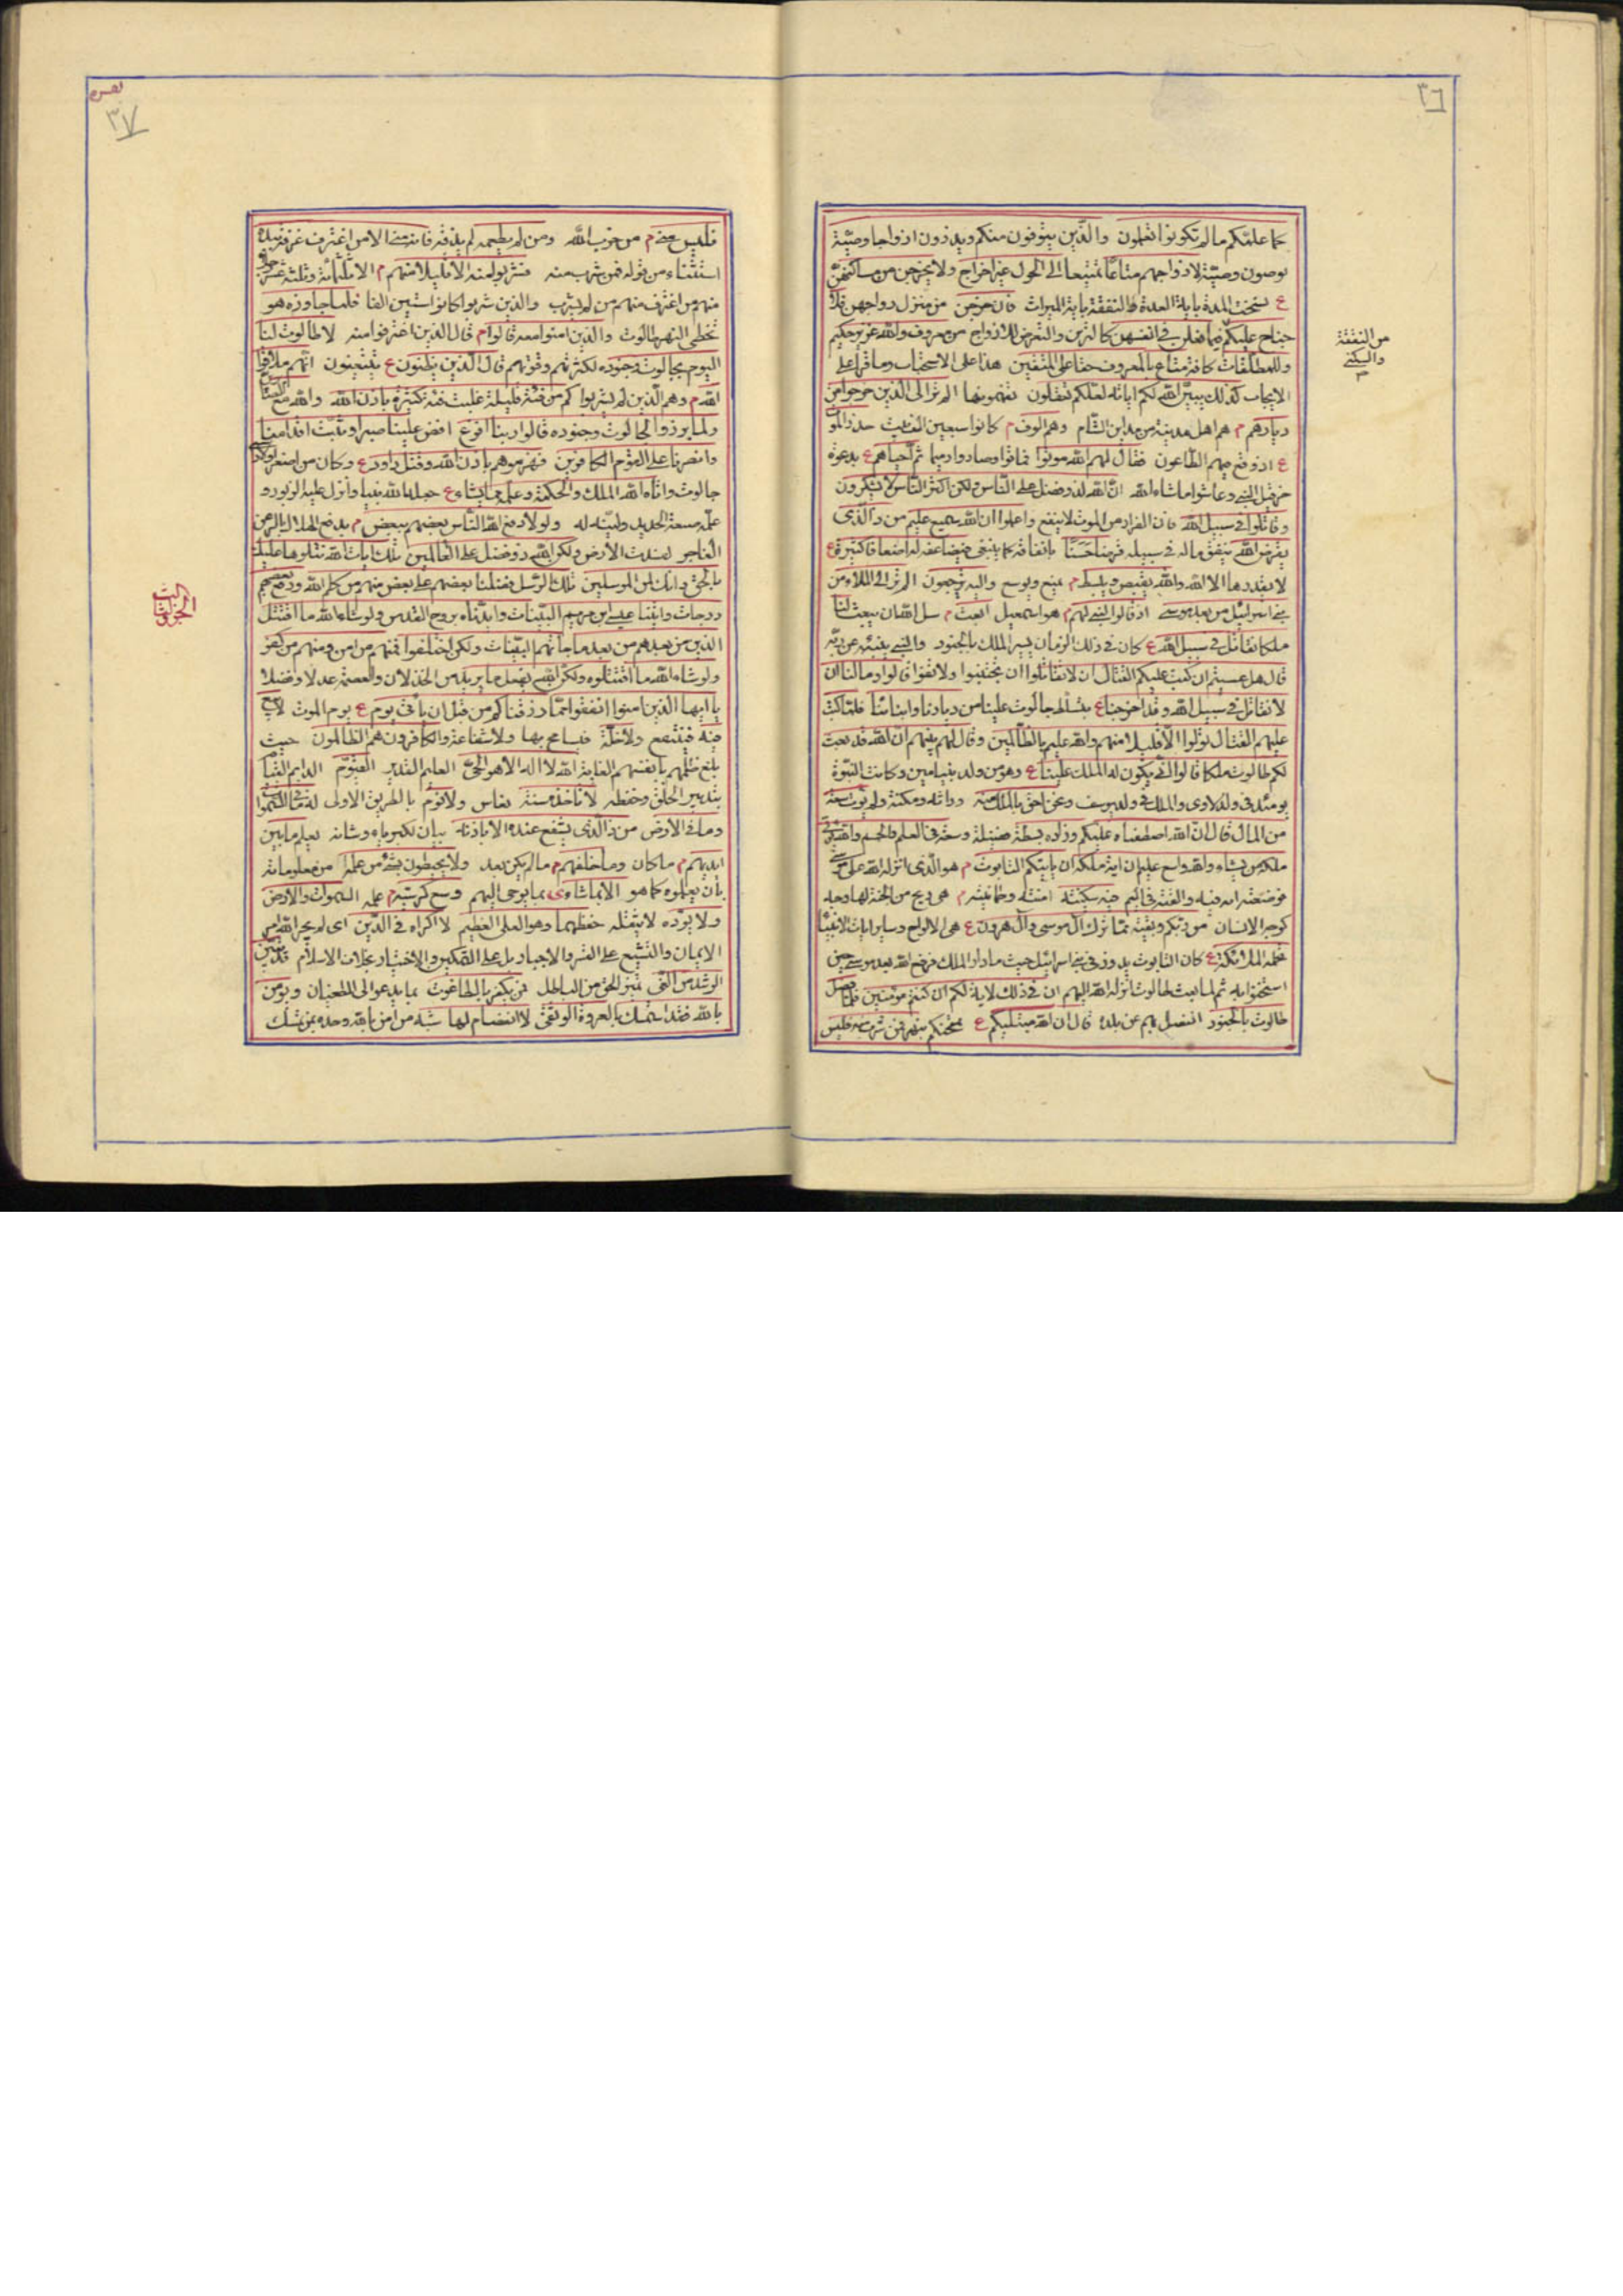 ٣٦
كما علمكم ما لم تكونوا تعلمون والذين يتوفون منكم ويذرون ازواجا وصية
يوصون وصية لازواجهم متاعا تمتيعا الى الحول غير اخراج ولا يخرجن من مساكنهن
ع نسخت المدة باية العدة والنفقة باية الميراث فان خرجن من منزل ازواجهن فلا
جناح عليكم فيما فعلن في انفسهن كالتزين والتعرض للازواج من معروف والله عزيز حكيم
من النفقة
والسكنى
م
وللمطلقات كافة متاع بالمعروف حقا على المتقين هذا على الاستحباب وما قرا على
الايجاب كذلك يبين الله لكم اياته لعلكم تعقلون تفهمونها الم تر الى الذين خرجوا من
ديارهم م هم اهل مدينة من مداين الشام وهم الوف م كانوا سبعين الف بيت حذر الموت
ع اذ وقع فيهم الطاعون فقال لهم الله موتوا فماتوا وصاروا رميما ثم احياهم ع بدعوة
حزقيل النبي وعاشوا ما شاء الله ان الله لذو فضل على الناس ولكن اكثر الناس لا يشكرون
وقاتلوا في سبيل الله فان الفرار من الموت لا ينفع واعلموا ان الله سميع عليم من ذا الذي
يقرض الله ينفق ماله في سبيله قرضا حسنا بانفاقه كما ينبغي فيضاعفه له اضعافا كثيرة ع
لا يقدرها الا الله والله يقبض ويبسط م يمنع ويوسع واليه ترجعون الم تر الى الملاء من
بني اسرائيل من بعد موسى اذ قالوا لنبي لهم م هو اسمعيل ابعث م سل الله ان يبعث لنا
ملكا نقاتل في سبيل الله ع كان في ذلك الزمان يسير الملك بالجنود والنبي ينبئه عن ربه
قال هل عسيتم ان كتب عليكم القتال ان لا تقاتلوا ان تجتنبوا ولا تفوا قالوا وما لنا ان
لا نقاتل في سبيل الله وقد اخرجنا ع بتسلط جالوت علينا من ديارنا وابنائنا فلما كتب
عليهم القتال تولوا الا قليلا منهم والله عليم بالظالمين وقال لهم نبيهم ان الله قد بعث
لكم طالوت ملكا قالوا انى يكون له الملك علينا ع وهو من ولد بنيامين وكانت النبوة
يومئذ في ولد لاوى والملك في ولد يوسف ونحن احق بالملك منه وراثة ومكنة ولم يؤت سعة
من المال قال ان الله اصطفاه عليكم وزاده بسطة فضيلة وسعة في العلم والجسم والله يؤتي
ملكه من يشاء والله واسع عليم ان اية ملكه ان ياتيكم التابوت م هو الذي انزله الله على موسى
فوضعته امه فيه والقته في اليم فيه سكينة امنة وطمانينة م هي ريح من الجنة لها وجه
كوجه الانسان من ربكم وبقية مما ترك ال موسى وال هرون ع هي الالواح وساير ايات الانبياء
تحمله الملائكة ع كان التابوت يدور في بني اسرائيل حيث ما دار الملك فرفع الله بعد موسى حين
استخفوا به ثم لما بعث طالوت انزله الله اليهم ان في ذلك لاية لكم ان كنتم مؤمنين فلما فصل
طالوت بالجنود انفصل بهم عن بلده قال ان الله مبتليكم ع ممتحنكم بنهر فمن شرب منه فليس
٣٧
فليس مني م من حزب الله ومن لم يطعمه لم يذقه فانه مني الا من اغترف غرفة بيده
استثناء من قوله فمن شرب منه فشربوا منه الا قليلا منهم م الا ثلثمائة وثلثة عشر رجلا
منهم من اغترف منهم من لم يشرب والذين شربوا كانوا ستين الفا فلما جاوزه هو
تخطى النهر طالوت والذين امنوا معه قالوا م قال الذين اغترفوا منه لا طاقة لنا
اليوم بجالوت وجنوده لكثرتهم وقوتهم قال الذين يظنون ع يتيقنون انهم ملاقوا
الله م وهم الذين لم يشربوا كم من فئة قليلة غلبت فئة كثيرة باذن الله والله مع الصابرين
ولما برزوا لجالوت وجنوده قالوا ربنا افرغ افض علينا صبرا وثبت اقدامنا
وانصرنا على القوم الكافرين فهزموهم باذن الله وقتل داود ع وكان من اصغر
جالوت واتاه الله الملك والحكمة وعلمه مما يشاء ع جعله الله نبيا وانزل عليه الزبور و
علمه صنعة الحديد ولينه له ولولا دفع الله الناس بعضهم ببعض م يدفع الهلاك بالبر عن
الفاجر لفسدت الارض ولكن الله ذو فضل على العالمين تلك ايات الله نتلوها عليك
بالحق وانك لمن المرسلين تلك الرسل فضلنا بعضهم على بعض منهم من كلم الله ورفع بعضهم
الجزء الثالث
درجات واتينا عيسى ابن مريم البينات وايدناه بروح القدس ولو شاء الله ما اقتتل
الذين من بعدهم من بعد ما جاءتهم البينات ولكن اختلفوا فمنهم من امن ومنهم من كفر
ولو شاء الله ما اقتتلوا ولكن الله يفعل ما يريد من الخذلان والعصمة عدلا وفضلا
يا ايها الذين امنوا انفقوا مما رزقناكم من قبل ان ياتي يوم ع يوم الموت لا بيع
فيه فينتفع ولا خلة فيسامح بها ولا شفاعة والكافرون هم الظالمون حيث
بلغ ظلمهم بانفسهم الغاية الله لا اله الا هو الحي العليم القدير القيوم الدايم القيام
بتدبير الخلق وحفظه لا تاخذه سنة نعاس ولا نوم بالطريق الاولى له ما في السموات
وما في الارض من ذا الذي يشفع عنده الا باذنه بيان لكبريائه وشانه يعلم ما بين
ايديهم م ما كان وما خلفهم م ما لم يكن بعد ولا يحيطون بشيء من علمه من معلوماته
بان يعلموه كما هو الا بما شاء ى بما يوحى اليهم وسع كرسيه م علمه السموات والارض
ولا يؤده لا يثقله حفظهما وهو العلي العظيم لا اكراه في الدين اي لم يجر الله امر
الايمان والتشيع على القسر والاجبار بل على التمكين والاختيار بخلاف الاسلام قد تبين
الرشد من الغي تميز الحق من الباطل فمن يكفر بالطاغوت بما يدعوا الى الطغيان ويؤمن
بالله فقد استمسك بالعروة الوثقى لا انفصام لها شبه من امن بالله وحده بمن تمسك